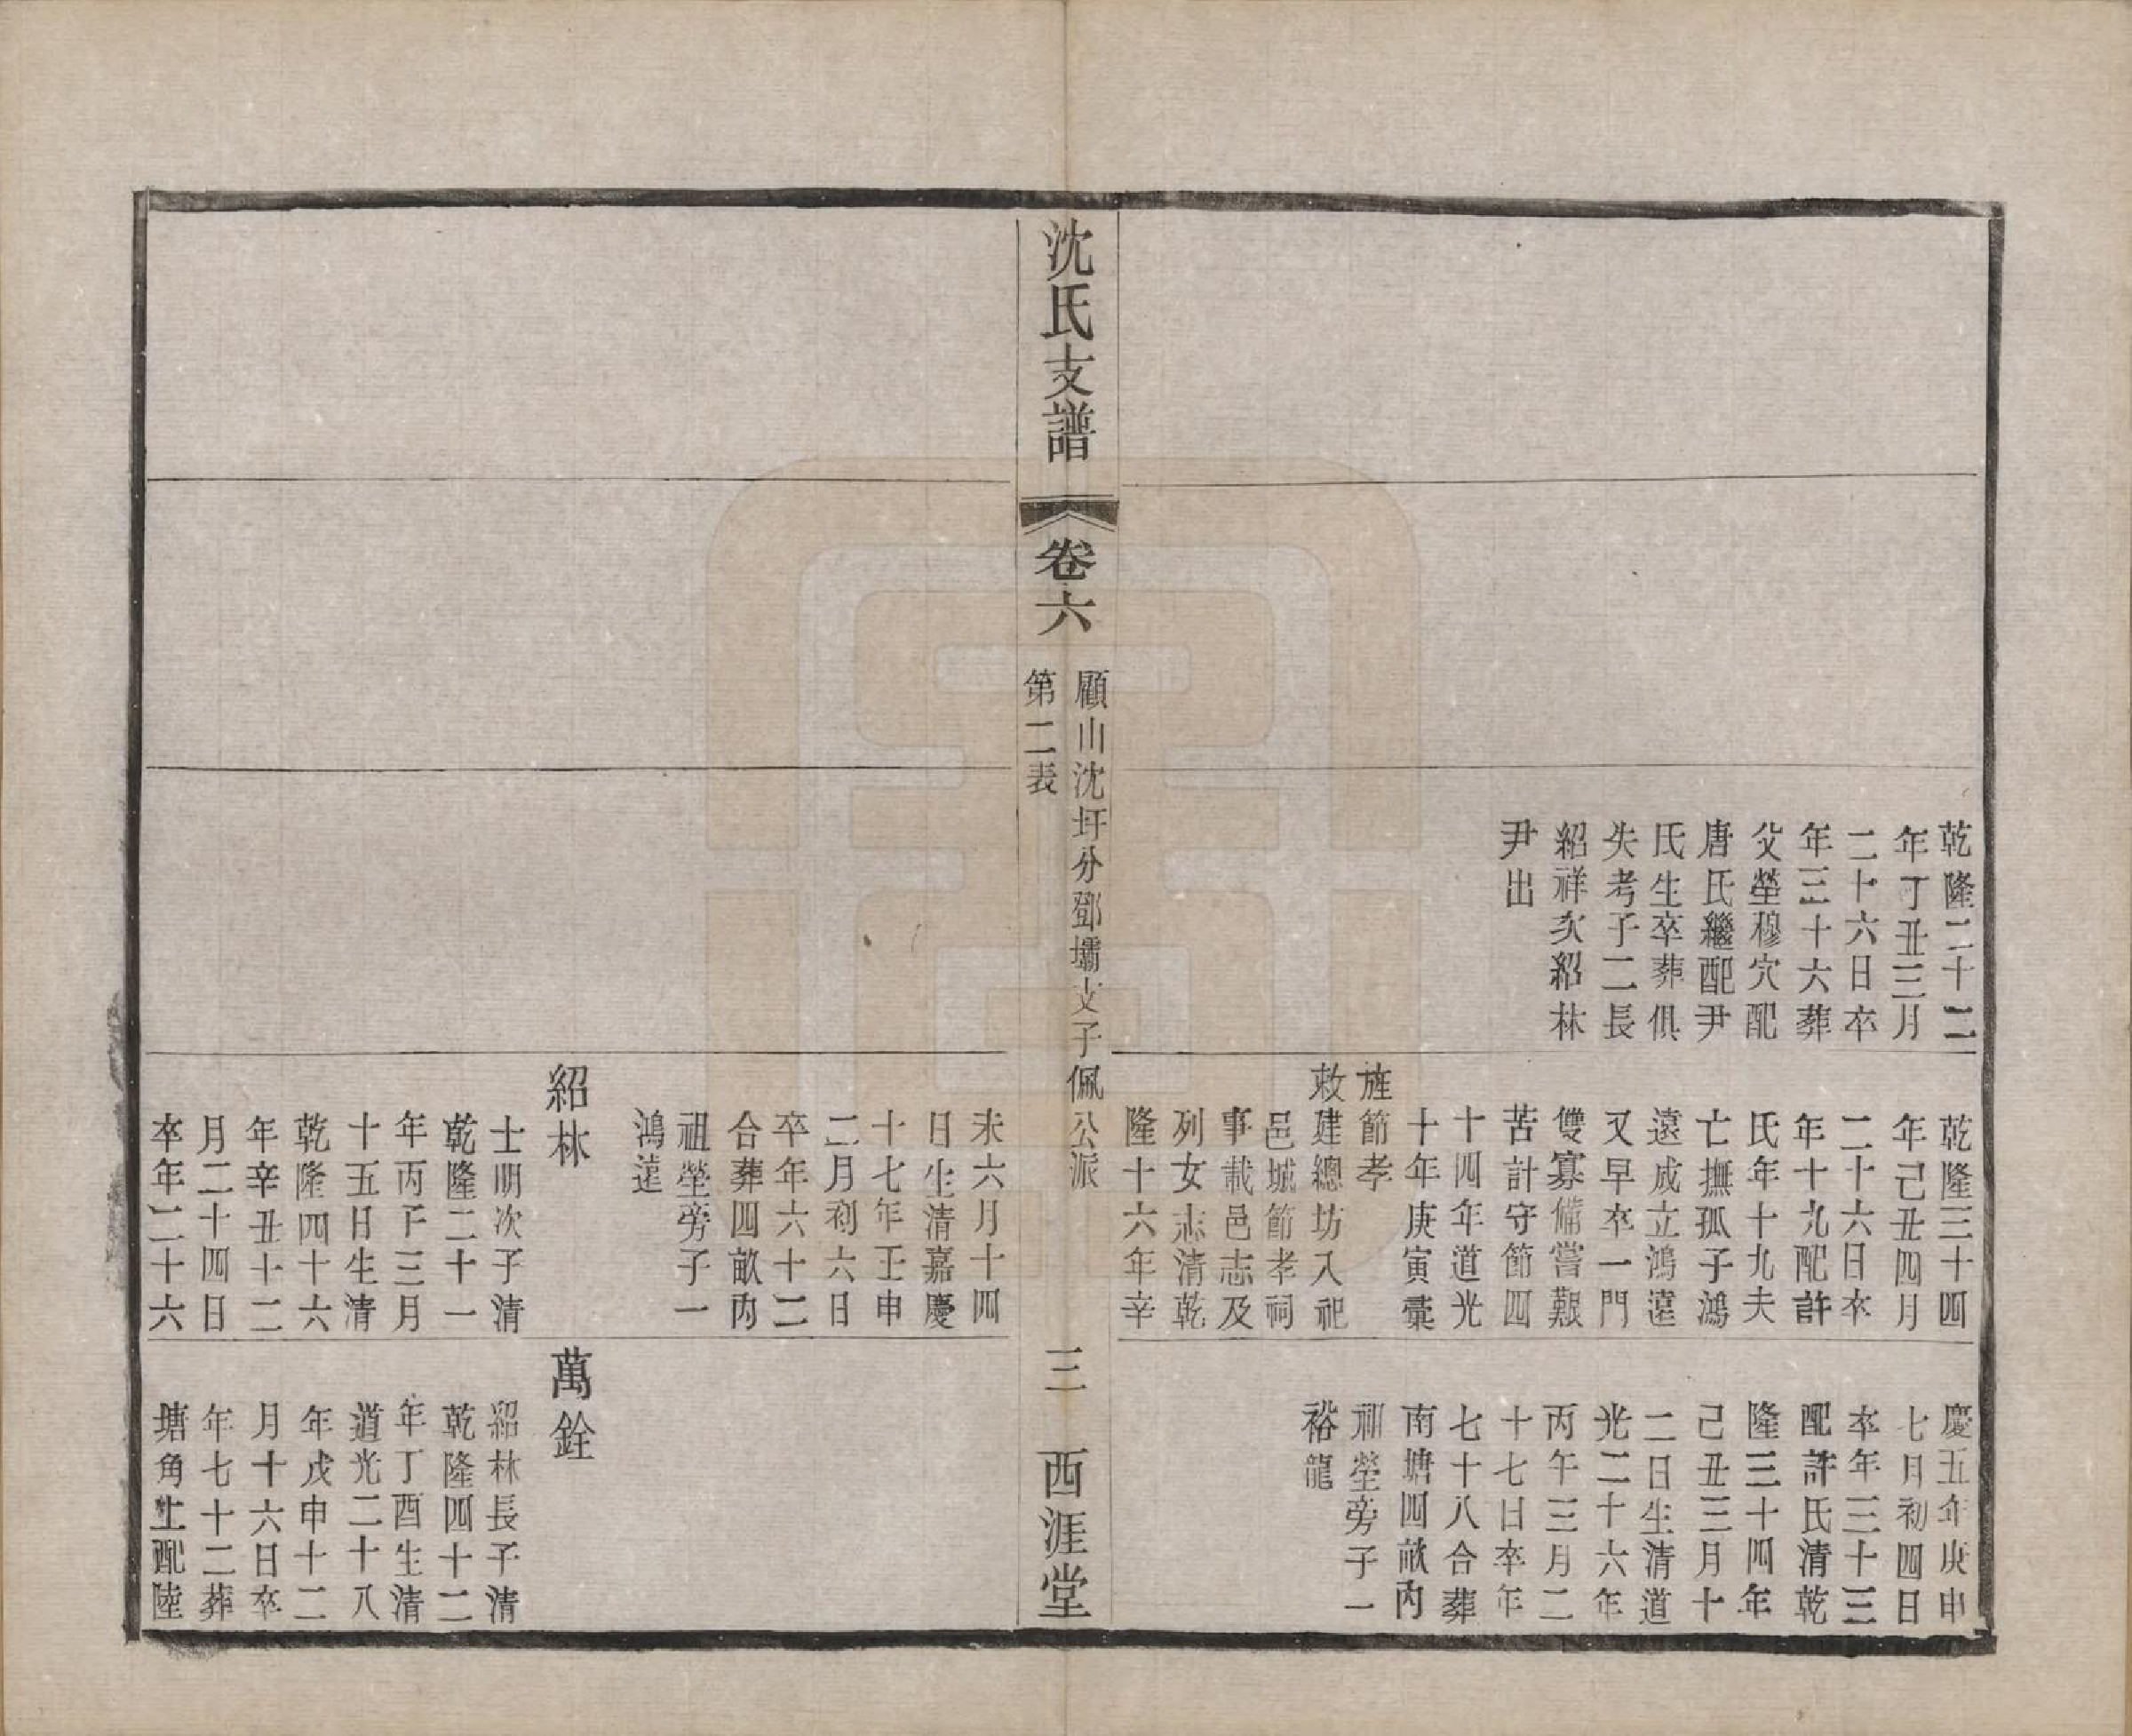 乾隆二十二
年丁丑三月
二十六日卒
年三十六葬
父塋穆穴配
唐氏繼配尹
氏生卒葬俱
失考子二長
紹祥次紹林
尹出
乾隆三十四
年己丑四月
二十六日卒
年十九配許
氏年十九夫
亡撫孤子鴻
遠成立鴻遠
又早卒一門
雙寡備嘗艱
苦計守節四
十四年道光
十年庚寅彙
旌節孝
敕建總坊入祀
邑城節孝祠
事載邑志及
列女志清乾
隆十六年辛
慶五年庚申
七月初四日
卒年三十三
配許氏清乾
隆三十四年
己丑三月十
二日生清道
光二十六年
丙午三月二
十七日卒年
七十八合葬
南塘四畝內
祖塋旁子一
裕龍
沈氏支譜
卷六
顧山沈圩分鄧壩支子佩公派
第二表
三
西涯堂
未六月十四
日生清嘉慶
十七年壬申
二月初六日
卒年六十二
合葬四畝內
祖塋旁子一
鴻遠
紹林
士明次子清
乾隆二十一
年丙子三月
十五日生清
乾隆四十六
年辛丑十二
月二十四日
卒年二十六
萬銓
紹林長子清
乾隆四十二
年丁酉生清
道光二十八
年戊申十二
月十六日卒
年七十二葬
塘角上配陸